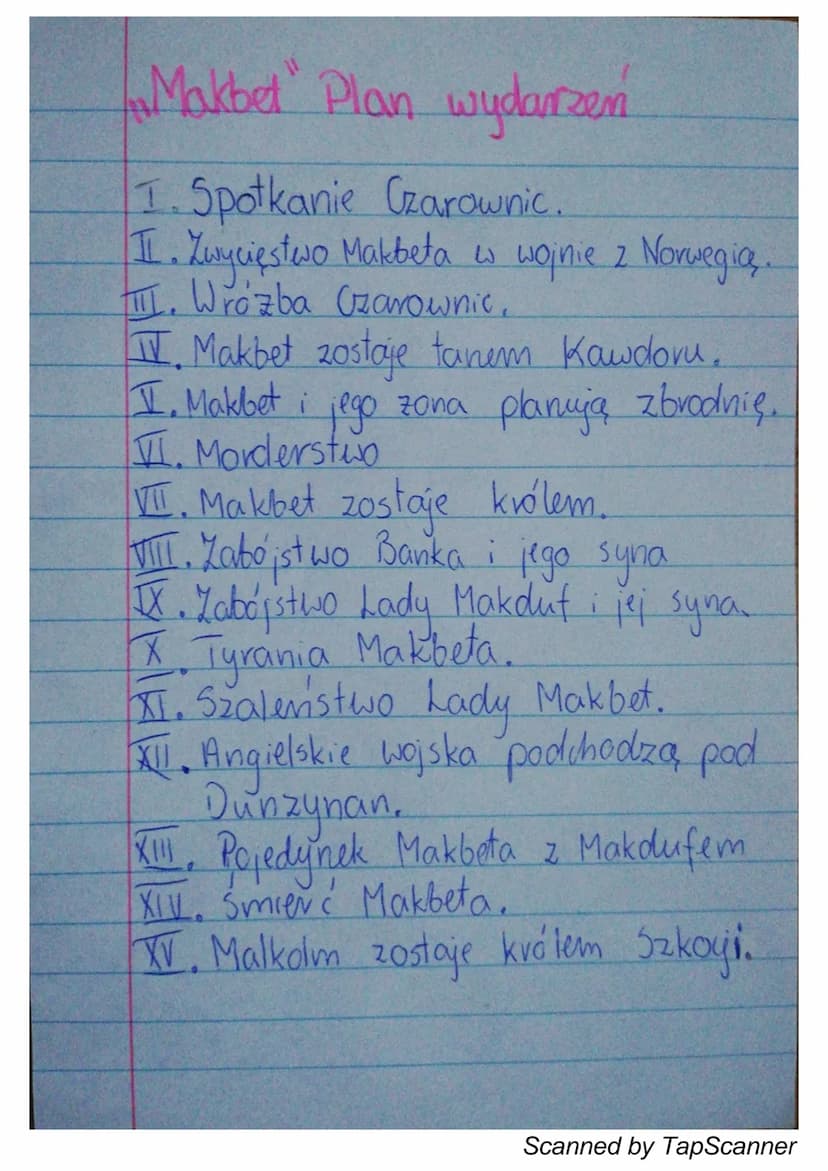 „Makbet" Plan wydarzeń
I. Spotkanie Czarownic.
II. Zwycięstwo Makbeta w wojnie z Norwegią.
III. Wróżba Czarownic.
IV. Makbet zostaje tanem Kawdoru.
V. Makbet i jego zona planują zbrodnię.
VI. Morderstwo
VII. Makbet zostaje królem.
VIII. Zabójstwo Banka i jego syna
IX. Zabójstwo Lady Makduf i jej syna.
X. Tyrania Makbeta.
XI. Szaleństwo Lady Makbet.
XII. Angielskie wojska podchodzą pod
Dunzynan.
XIII. Pojedynek Makbeta z Makdufem
XIV. Śmierć Makbeta.
XV. Malkolm zostaje królem Szkoji.
Scanned by TapScanner